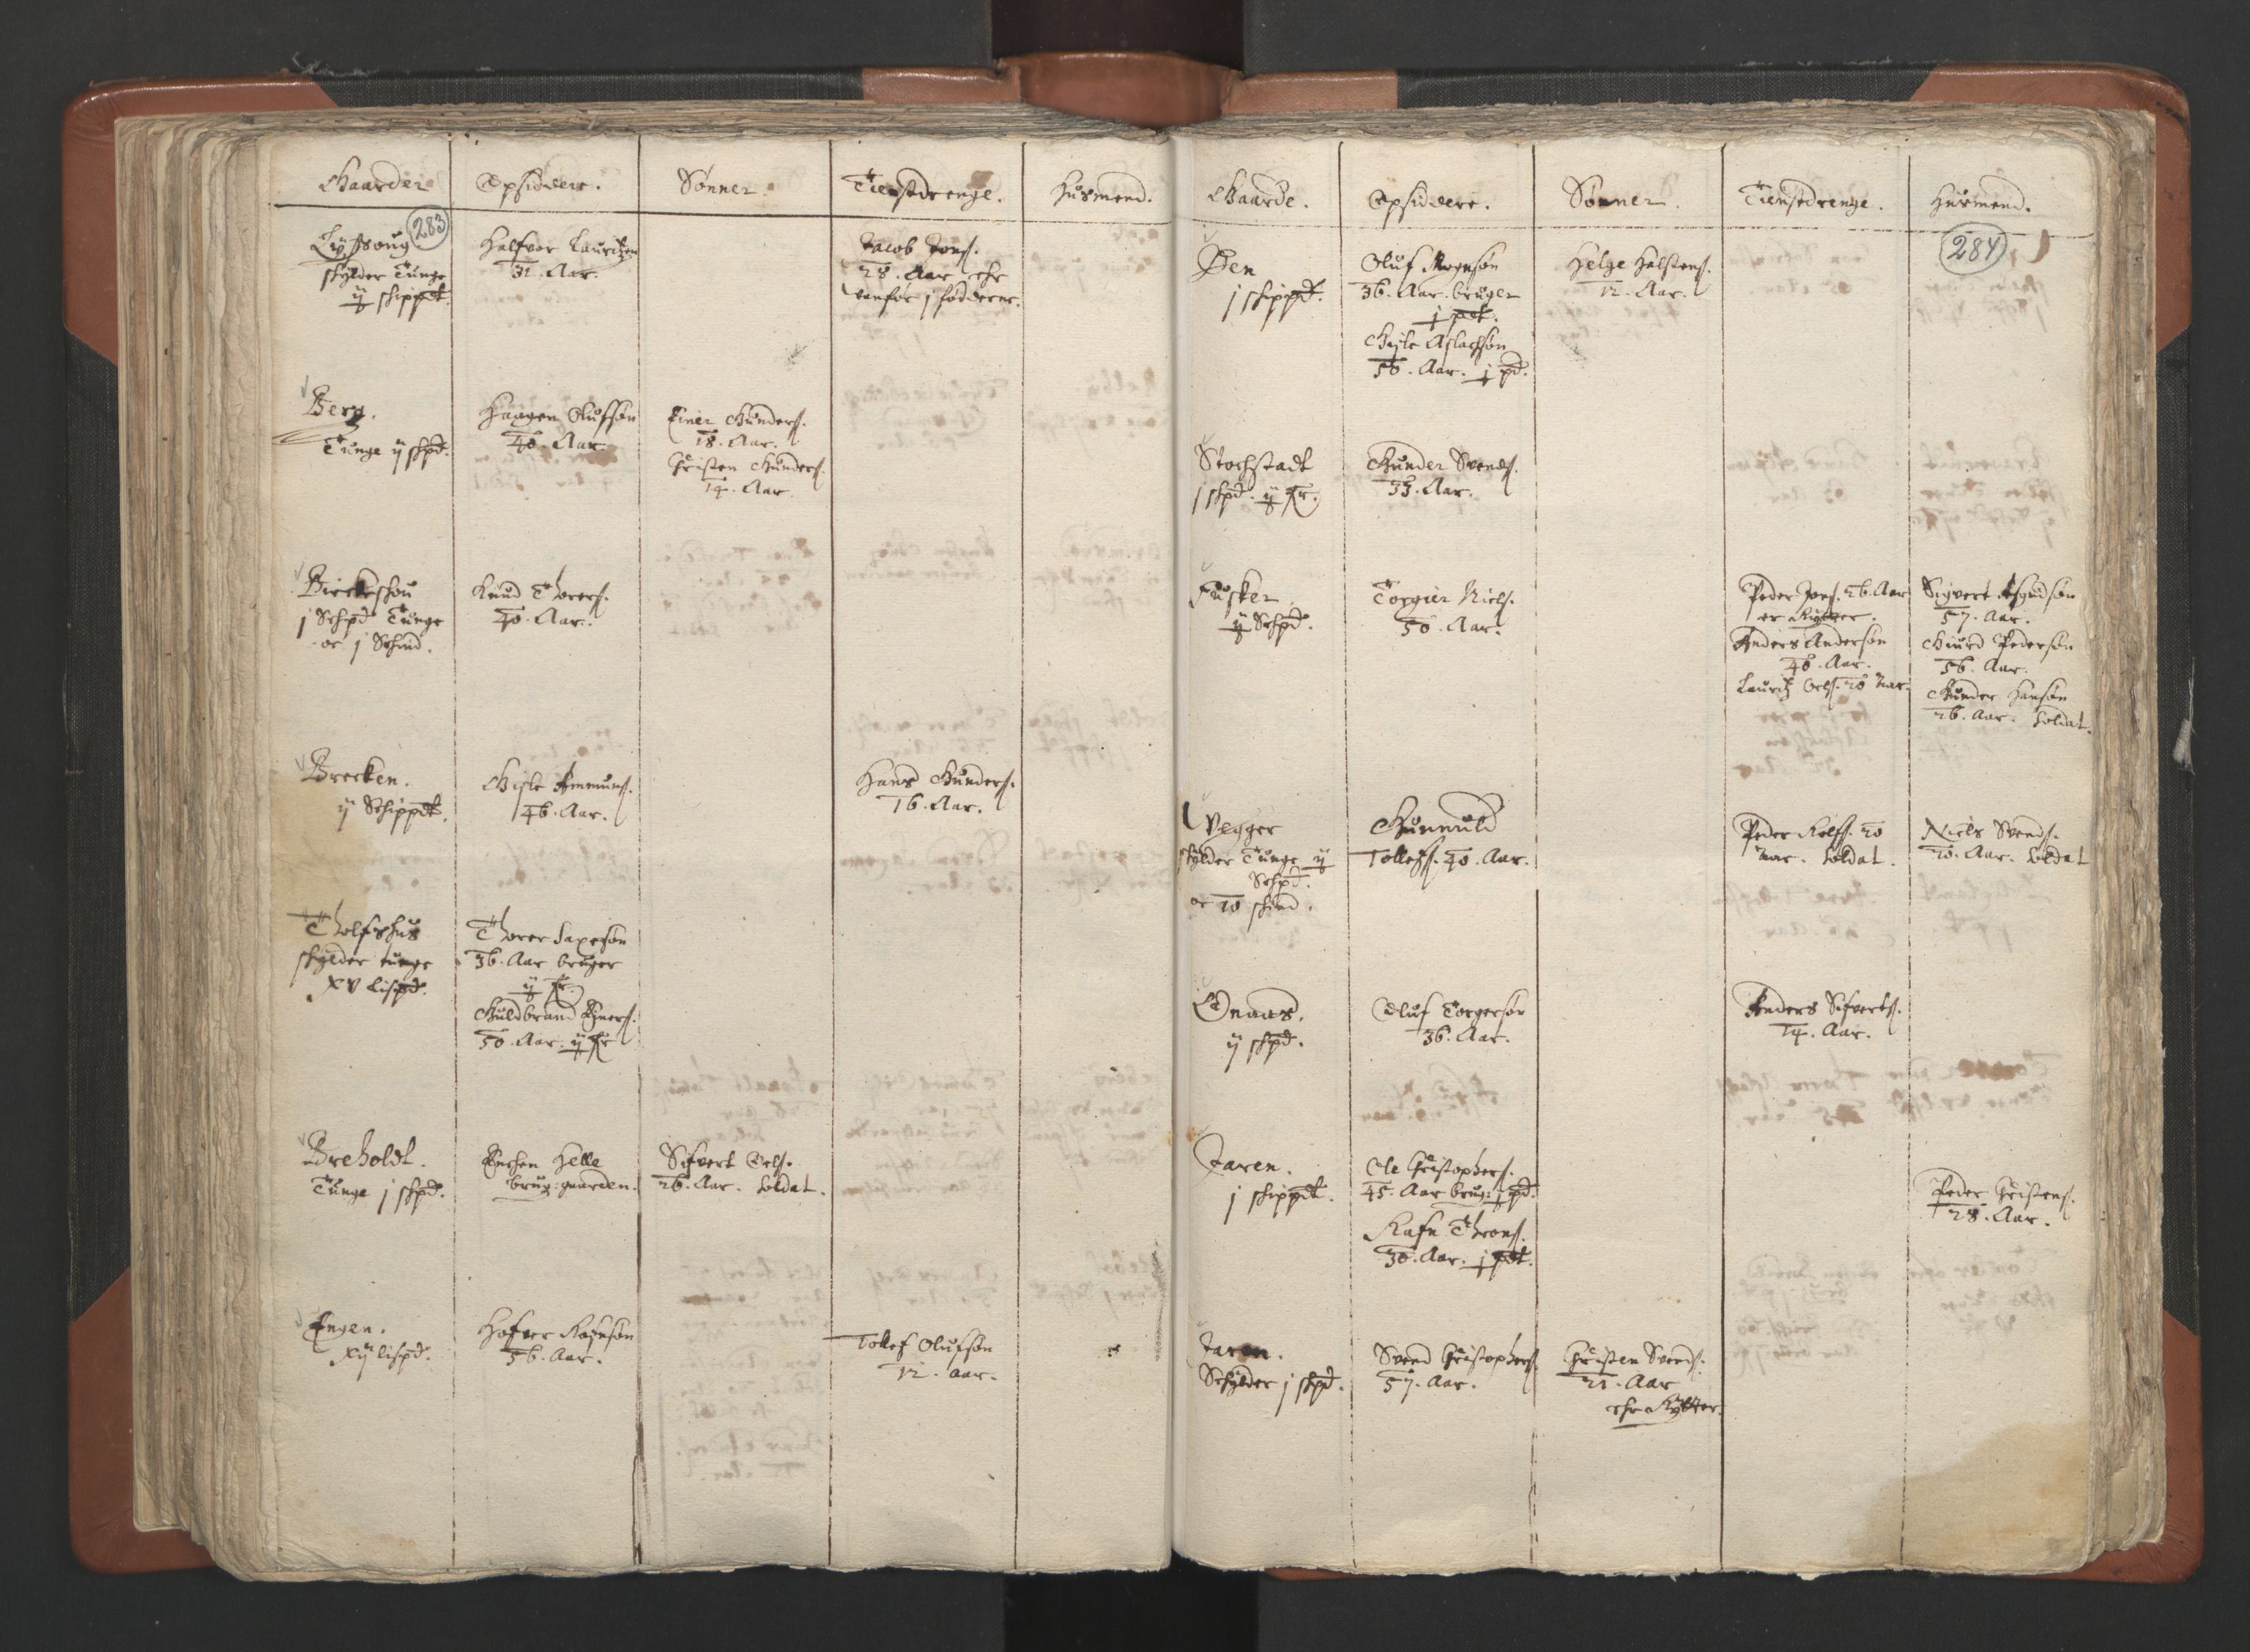 Gaarder Opsidere. Sønner Tienstdrenge. Husmend.
283
skylder Tunge
ij schippdt.
Halfvor Lauritzen
32. Aar.
Jacob Jons.
28. Aar ehr
vanfør i fødderne.
Berg.
Tunge ij schpd.
Haagen Olufsøn
40. Aar.
Einer Gunders.
18. Aar.
Christen Gunders.
14. Aar.
Birckeschou
j Schpd Tunge
oc j Schind.
Knud Thorers.
40. Aar.
Brecken.
ij Schippdt.
Gisle Ammuns.
46. Aar.
Hans Gunders.
16. Aar.
Tholfshus
skylder tunge
XV lispd.
Thorer Saxesøn
36. Aar bruger
Guldbrand Einers.
50. Aar.
Breholdt.
Tunge j schpd.
Enchen Helle
brug: gaarden.
Sifvert Oels.
26. Aar. Soldat.
Engen.
xij lispd.
Hafvor
56. Aar.
Tollef Olufsøn
12. aar.
Gaarde. Opsidere. Sønner. Tienstdrenge. Husmend.
284
Øen
j schippd.
Oluf Mognsøn
36. Aar. bruger
Gisle Aslachsøn
56. Aar.
Helge Halstens.
12. Aar.
Stochstadt
j schpd.
Gunder Svends.
33. Aar.
Fusker
Schpd.
Torgier Niels.
50. Aar.
Peder Jons. 26. Aar
er Rytter.
Anders Andersøn
40. Aar.
Lauritz Oels. 20 Aar.
Sigvert Asgudsøn
57. Aar.
Giurd Pedersøn
56. Aar.
Gunder Hansøn
26. Aar. Soldat.
Vegger
skylder Tunge ij
Schpd.
oc 10 schind.
Gunnuld
Tollefs. 40. Aar.
Peder Rolfs. 20
Aar. Soldat.
Niels Svends.
20. Aar. Soldat
Onaas.
ij schpd.
Oluf Torgersøn
36. Aar.
Anders Sifverts.
14. Aar.
Jaren.
j schippdt.
Ole Christophers.
45. Aar brug:
Rafn Throns.
30. Aar.
Peder Christens.
28. Aar.
Jaren.
Schylder j schpd.
Svend Christophers.
57. Aar.
Christen Svends.
21. Aar
ehr Rytter.